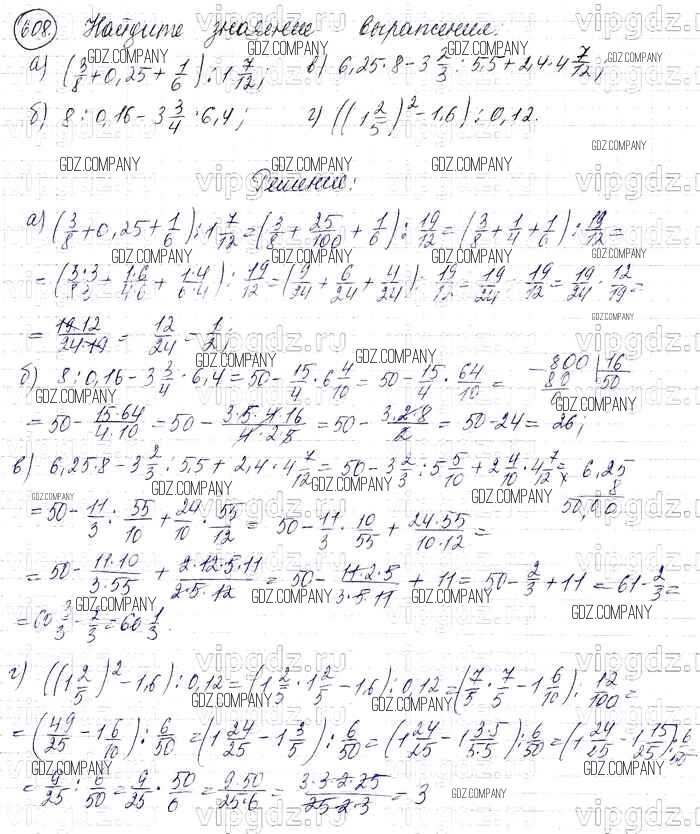 608. Найдите значение выражения:
а) (3/8 + 0,25 + 1/6) : 1 7/12; в) 6,25 · 8 - 3 2/3 : 5,5 + 2,4 · 4 7/12;
б) 8 : 0,16 - 3 3/4 · 6,4; г) ((1 2/5)² - 1,6) : 0,12.
Решение:
а) (3/8 + 0,25 + 1/6) : 1 7/12 = (3/8 + 25/100 + 1/6) : 19/12 = (3/8 + 1/4 + 1/6) : 19/12 =
= (3·3/8·3 + 1·6/4·6 + 1·4/6·4) : 19/12 = (9/24 + 6/24 + 4/24) : 19/12 = 19/24 : 19/12 = 19/24 · 12/19 =
= 19·12/24·19 = 12/24 = 1/2;
б) 8 : 0,16 - 3 3/4 · 6,4 = 50 - 15/4 · 6 4/10 = 50 - 15/4 · 64/10 = 800 16
80 50
0
= 50 - 15·64/4·10 = 50 - 3·5·4·16/4·2·5 = 50 - 3·2·8/2 = 50 - 24 = 26;
в) 6,25·8 - 3 2/3 : 5,5 + 2,4 · 4 7/12 = 50 - 3 2/3 : 5 5/10 + 2 4/10 · 4 7/12 = × 6,25
8
50,00
= 50 - 11/3 : 55/10 + 24/10 · 55/12 = 50 - 11/3 · 10/55 + 24·55/10·12 =
= 50 - 11·10/3·55 + 2·12·5·11/2·5·12 = 50 - 11·2·5/3·5·11 + 11 = 50 - 2/3 + 11 = 61 - 2/3 =
= 60 3/3 - 2/3 = 60 1/3.
г) ((1 2/5)² - 1,6) : 0,12 = (1 2/5 · 1 2/5 - 1,6) : 0,12 = (7/5 · 7/5 - 1 6/10) : 12/100 =
= (49/25 - 1 6/10) : 6/50 = (1 24/25 - 1 3/5) : 6/50 = (1 24/25 - 1 3·5/5·5) : 6/50 = (1 24/25 - 1 15/25) : 6/50
= 9/25 : 6/50 = 9/25 · 50/6 = 9·50/25·6 = 3·3·2·25/25·2·3 = 3
GDZ.COMPANY
vipgdz.ru